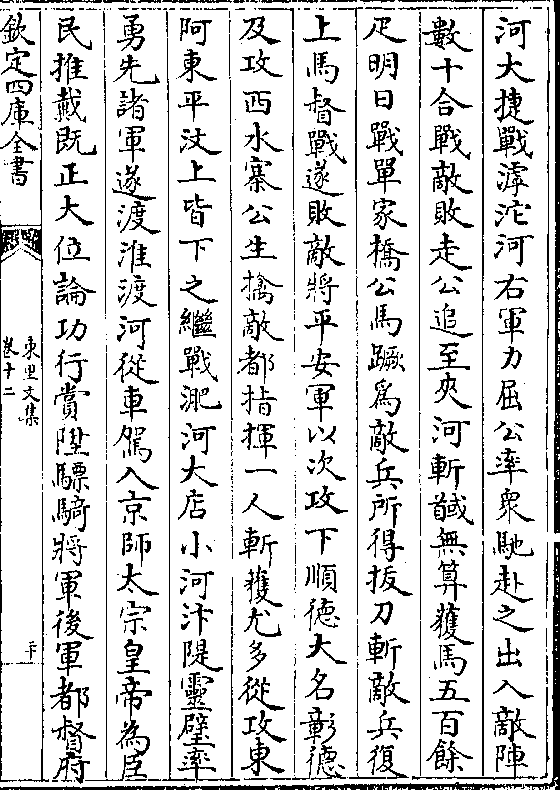 河大捷戰滹沱河右軍力屈公率衆馳赴之出入敵陣
數十合戰敵敗走公追至夾河斬馘無算獲馬五百餘
疋明日戰單家橋公馬蹶爲敵兵所得拔刀斬敵兵復
上馬督戰遂敗敵將平安軍以次攻下順德大名彰德
及攻西水寨公生擒敵都指揮一人斬獲尤多從攻東
阿東平汶上皆下之繼戰淝河大店小河汴隄靈壁率
勇先諸軍遂渡淮渡河從車駕入京師太宗皇帝為臣
民推戴既正大位論功行賞陞驃騎將軍後軍都督府
欽定四庫全書
東里文集
卷十二